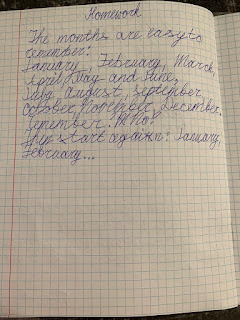 Homework
The months are easy to
remember:
January, February, March,
April, May and June,
July, August, September
October, November, December.
Remember.
Then start again: January,
February...